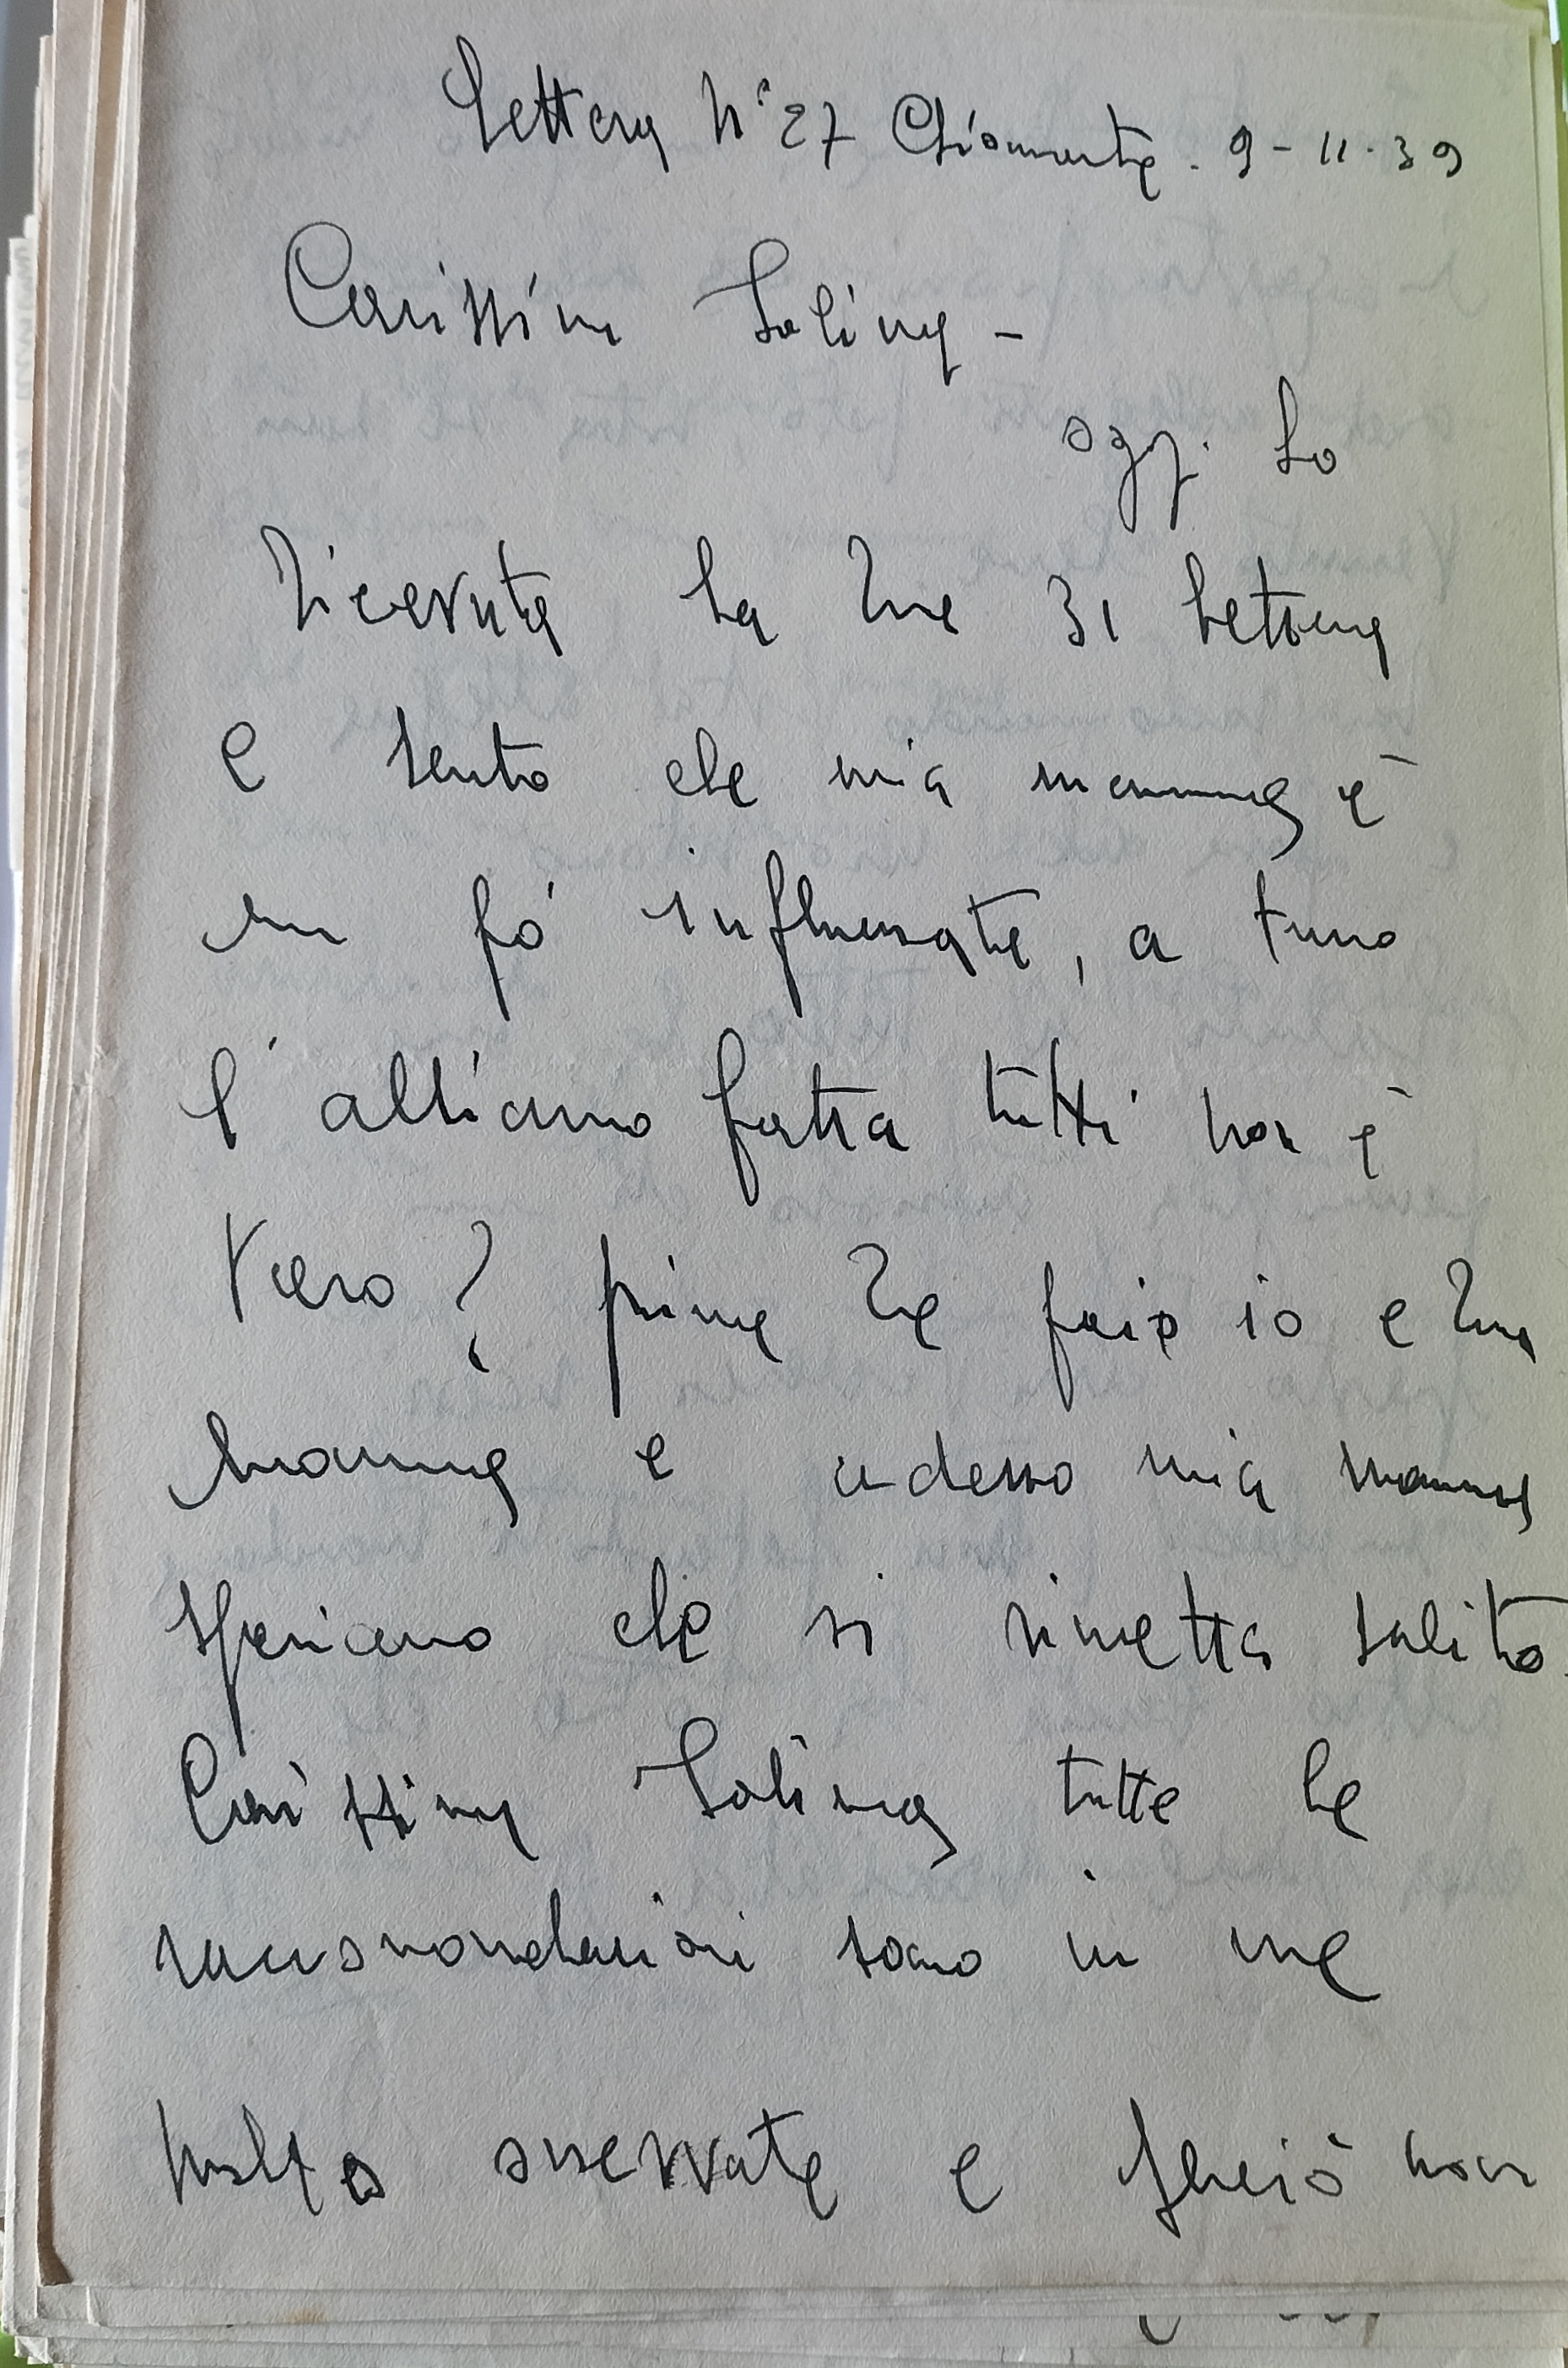 Lettera N° 27 Chiomonte. 9-11-39
Carissima Lolina -
oggi ho
ricevuta la tua 31 lettera
e sento che mia mamma è
un pó influenzata, a turno
l'abbiamo fatta tutti non è
vero? prima te poi io e tua
mamma e adesso mia mamma
speriamo che si rimetta subito.
Carissima Lolina tutte le
raccomandazioni sono in me
molto osservate e perciò non